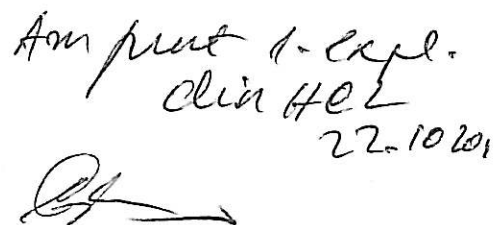 Am primit 1. expl.
din HCL
22.10 20,